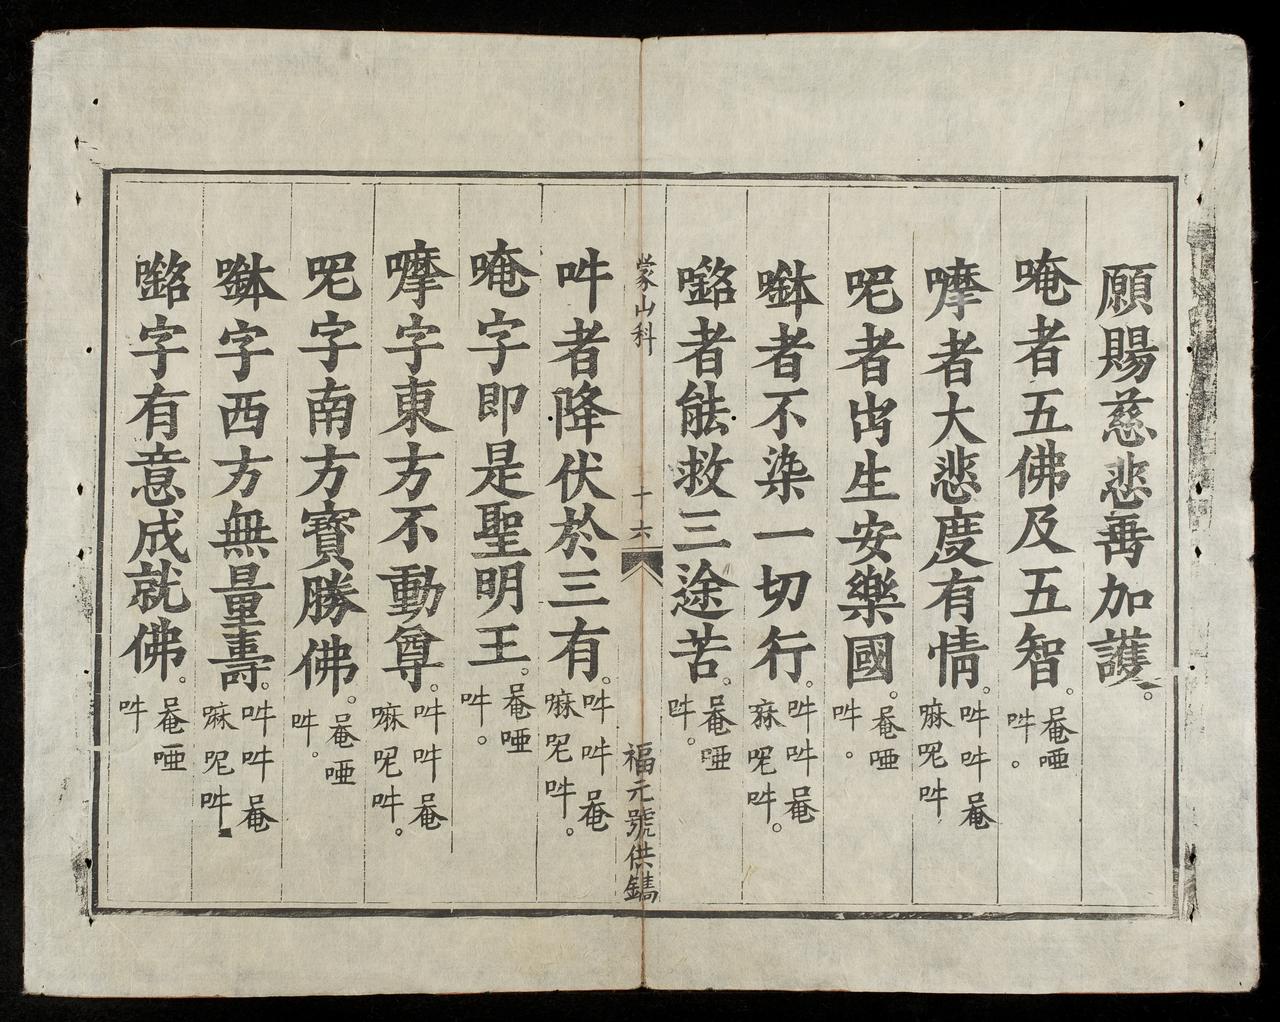 願賜慈悲加護。
唵者五佛及五智。唵啞吽。
嚤者大悲度有情。吽吽唵嘛呢吽
呢者出生安樂國。唵啞吽。
⿰口缽者不染一切行。吽吽唵嘛呢吽。
⿰口銘者能救三途苦。唵啞吽。
蒙山科
十六
福元號供鐫
吽者降伏於三有。吽吽唵嘛呢吽。
唵字即是聖明王。唵啞吽。
嚤字東方不動尊。吽吽唵嘛呢吽。
呢字南方寶勝佛。唵啞吽。
⿰口缽字西方無量壽。吽吽唵嘛呢吽
⿰口銘字有意成就佛。唵啞吽